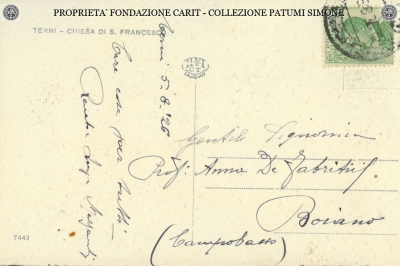 PROPRIETA' FONDAZIONE CARIT - COLLEZIONE PATUMI SIMONE
TERNI - CHIESA DI S. FRANCESCO
Terni 5-8-'26
Care cose per tutti
Gentile Signorina
Prof. Anna De Gabritiis
Boiano
(Campobasso)
7443